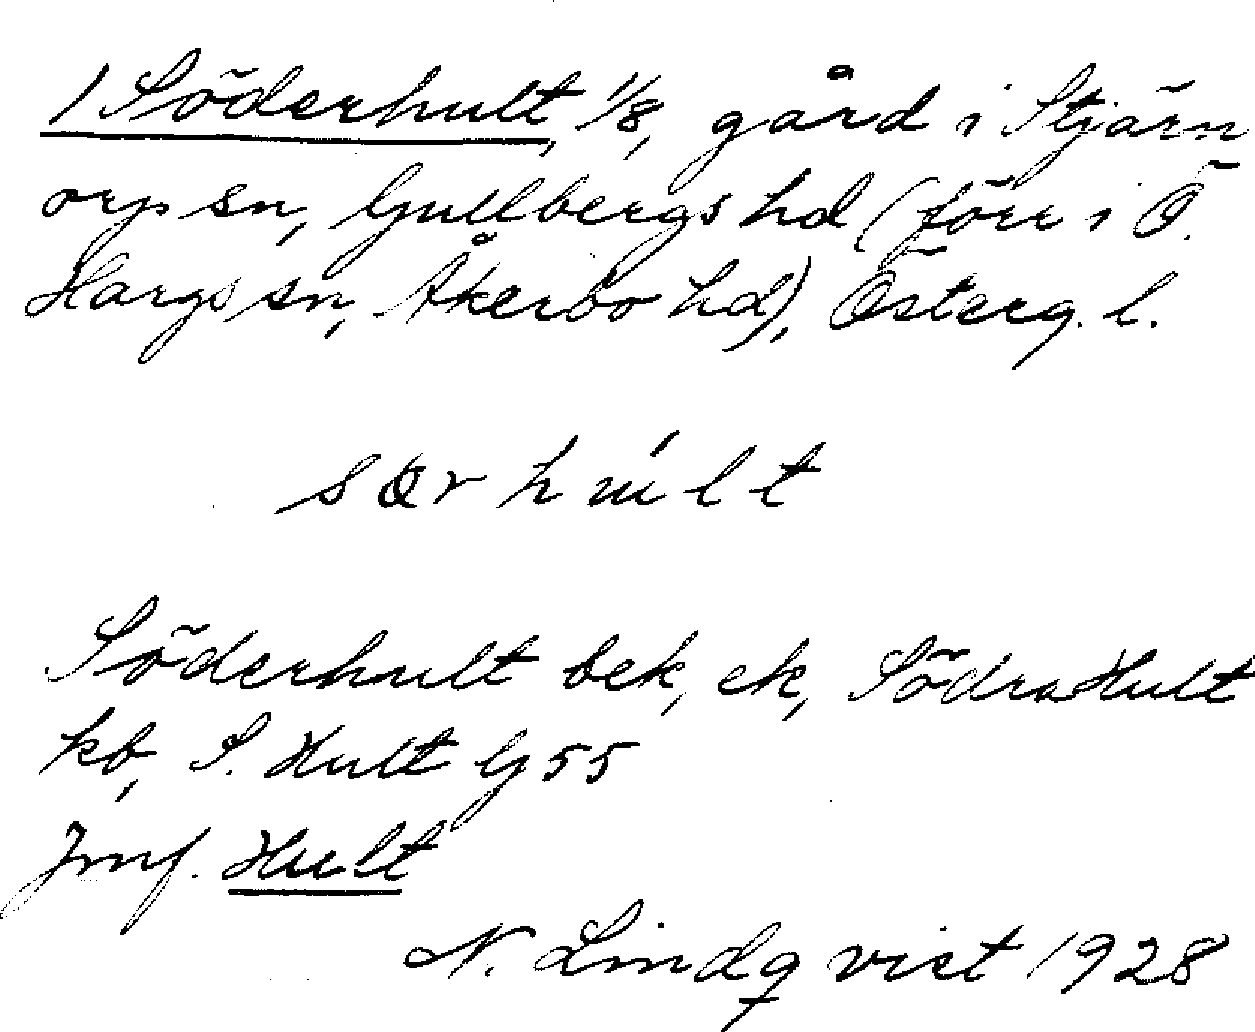 / Söderhult, 1/8, gård i Stjärn
orp sn, Gullbergs hd (förr i Ö.
Hargs sn, Åkerbo hd), Österg. l.
Söderhult bek, ek, Södra Hult
kb, S. Hult Gj 55
Jmf. Hult
N. Lindqvist 1928